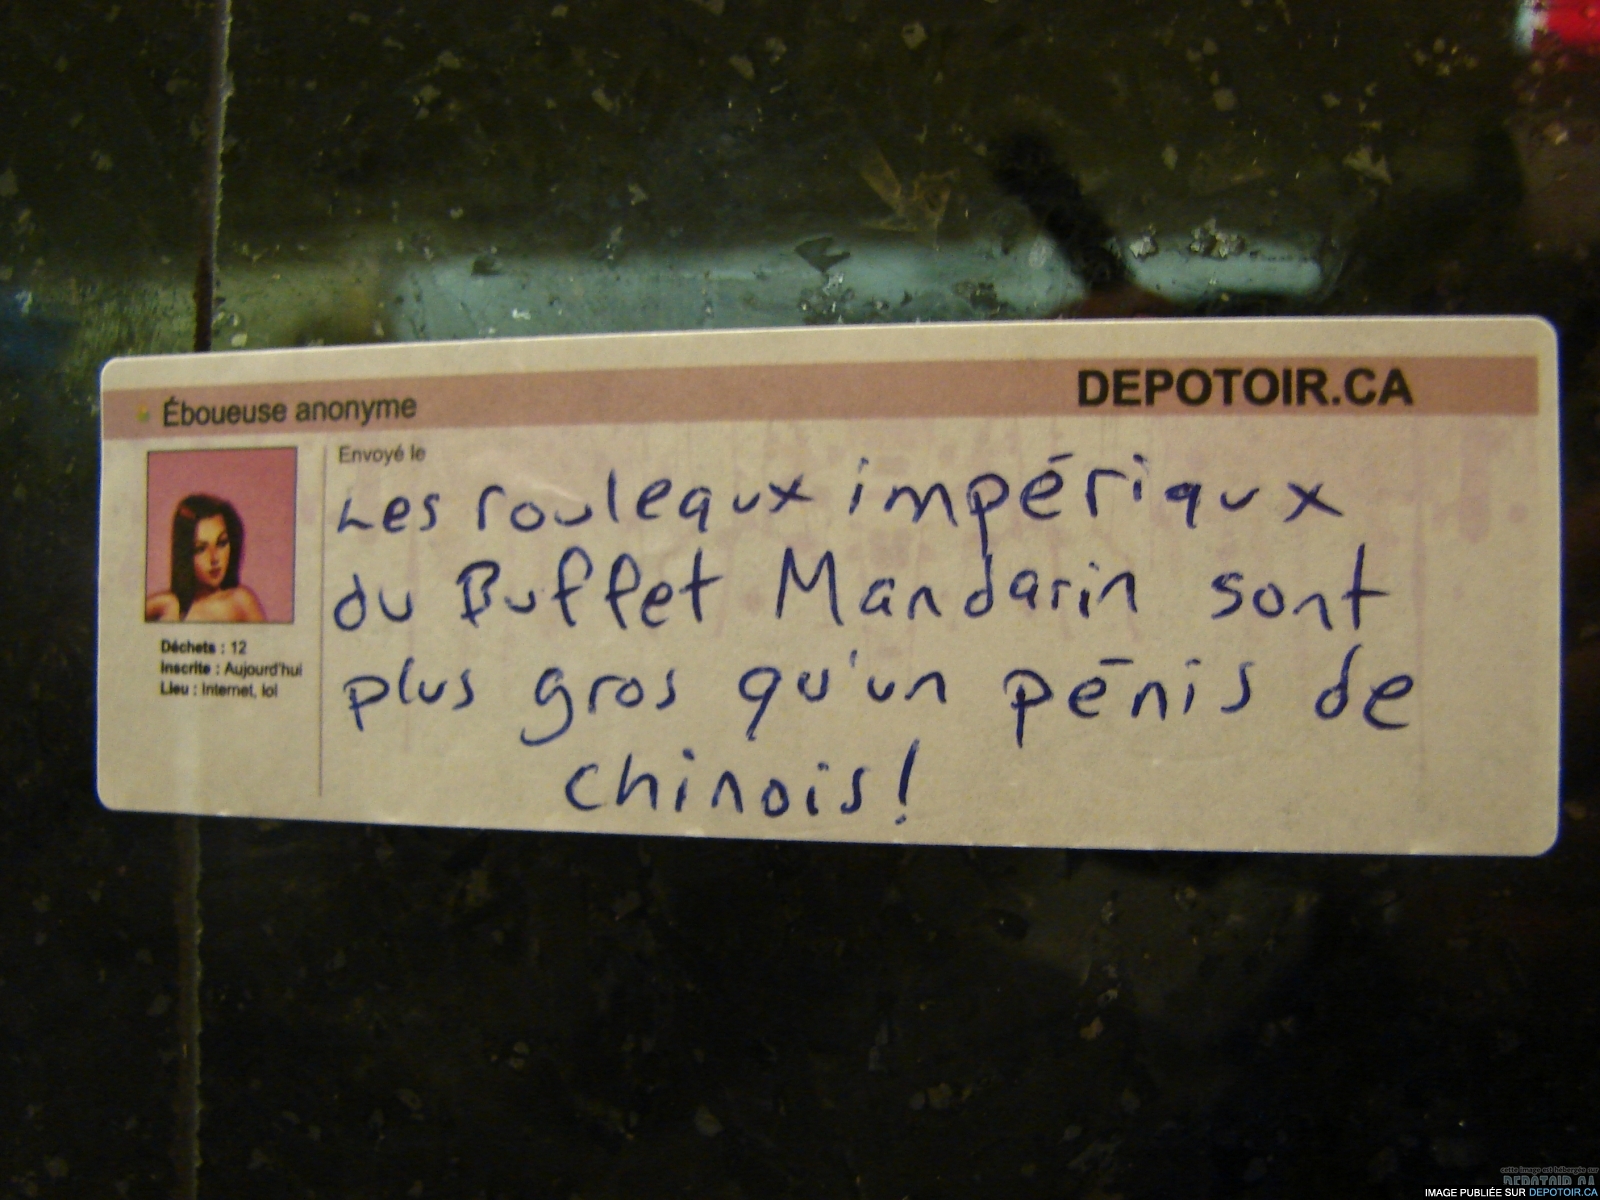 Éboueuse anonyme
DEPOTOIR.CA
Envoyé le
Les rouleaux impériaux
du Buffet Mandarin sont
plus gros qu'un pénis de
chinois!
Déchets : 12
Inscrite : Aujourd'hui
Lieu : Internet, lol
cette image est hébergée sur
DEPOTOIR.CA
IMAGE PUBLIÉE SUR DEPOTOIR.CA